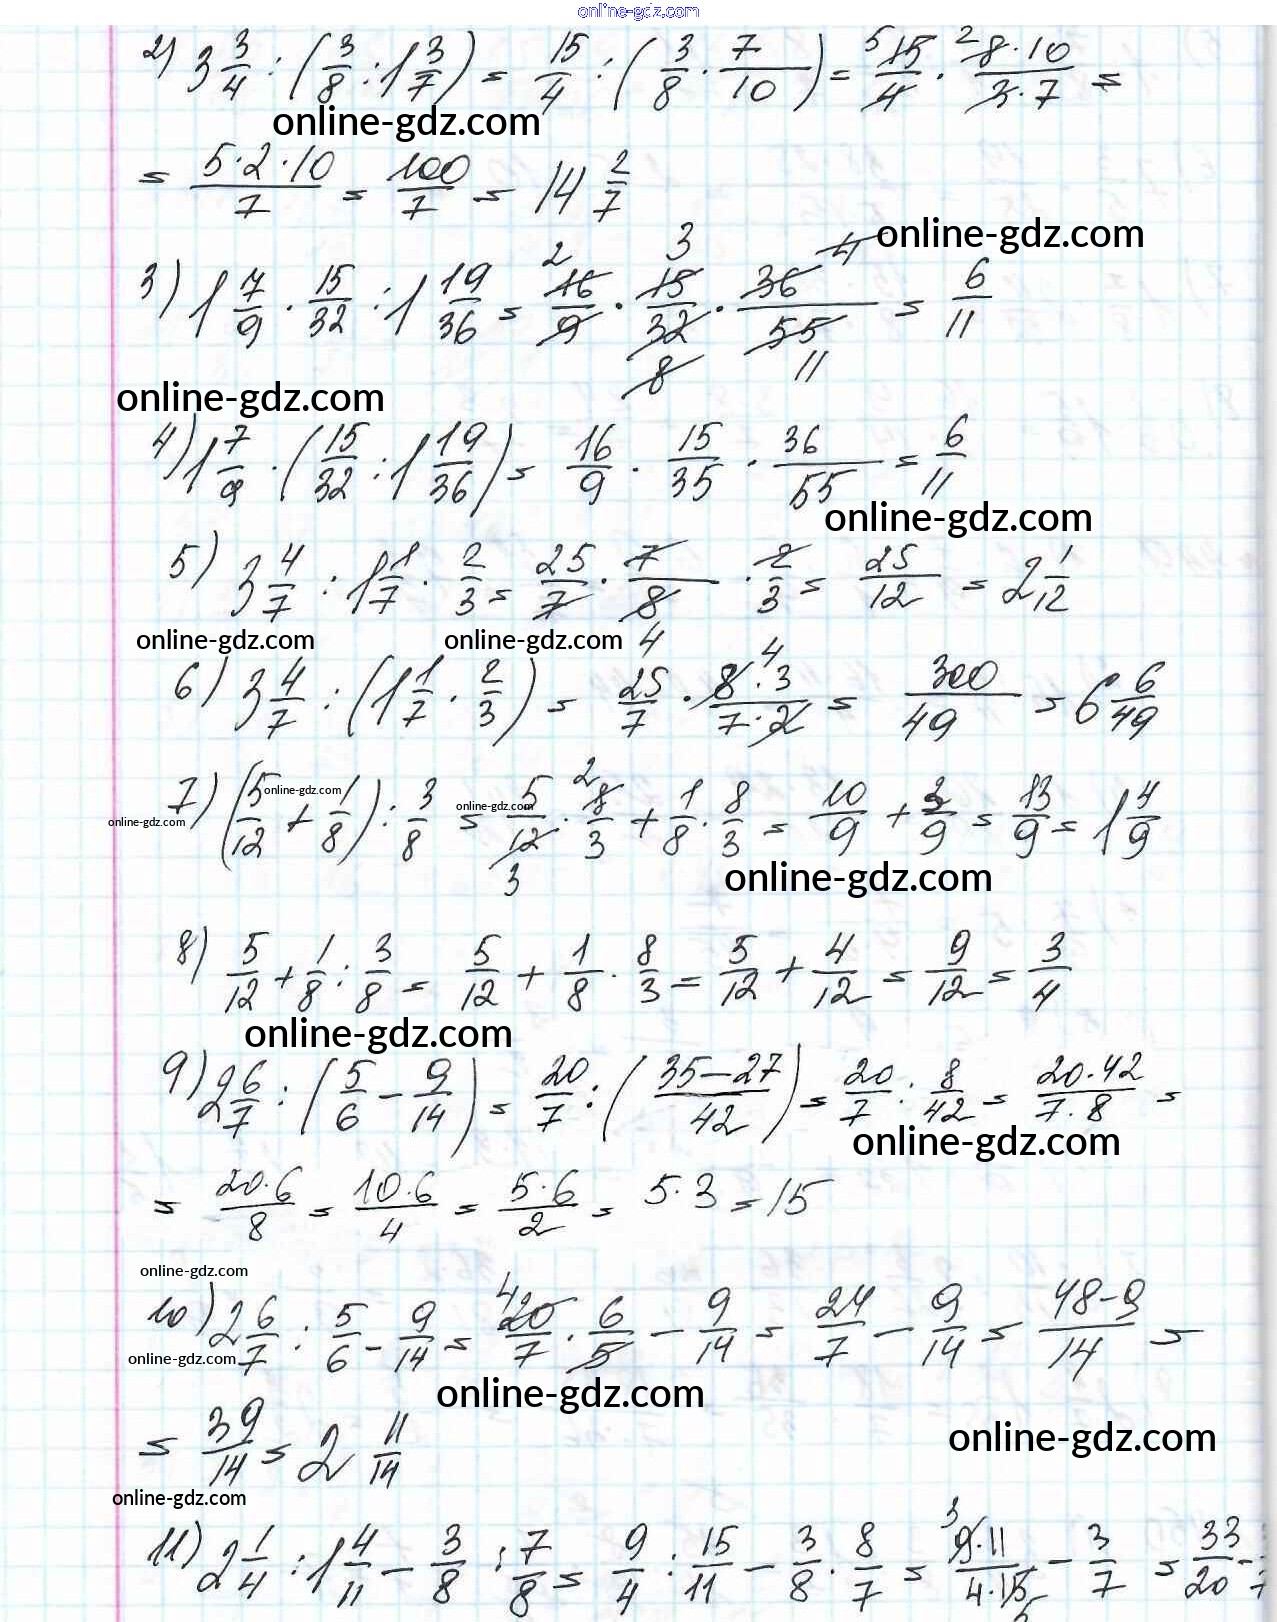 online-gdz.com
2) 3 3/4 : (3/8 : 1 3/7) = 15/4 : (3/8 · 7/10) = 5 15/4 · 2 8·10/3·7 =
online-gdz.com
= 5·2·10/7 = 100/7 = 14 2/7
online-gdz.com
3) 1 7/9 · 15/32 : 1 19/36 = 2 16/9 · 3 15/32 8 · 36 4/55 11 = 6/11
online-gdz.com
4) 1 7/9 · (15/32 : 1 19/36) = 16/9 · 15/35 · 36/55 = 6/11
online-gdz.com
5) 3 4/7 : 1 1/7 · 2/3 = 25/7 · 7/8 4 · 2/3 = 25/12 = 2 1/12
online-gdz.com online-gdz.com
6) 3 4/7 : (1 1/7 · 2/3) = 25/7 · 8 4·3/7·2 = 300/49 = 6 6/49
online-gdz.com online-gdz.com
7) (5/12 + 1/8) : 3/8 = 5/12 3 · 2 8/3 + 1/8 · 8/3 = 10/9 + 3/9 = 13/9 = 1 4/9
online-gdz.com
online-gdz.com
8) 5/12 + 1/8 : 3/8 = 5/12 + 1/8 · 8/3 = 5/12 + 4/12 = 9/12 = 3/4
online-gdz.com
9) 2 6/7 : (5/6 - 9/14) = 20/7 : (35-27/42) = 20/7 : 8/42 = 20·42/7·8 =
online-gdz.com
= 20·6/8 = 10·6/4 = 5·6/2 = 5·3 = 15
online-gdz.com
10) 2 6/7 : 5/6 - 9/14 = 4 20/7 · 6/5 - 9/14 = 24/7 - 9/14 = 48-9/14 =
online-gdz.com
online-gdz.com
= 39/14 = 2 11/14
online-gdz.com
online-gdz.com
11) 2 1/4 : 1 4/11 - 3/8 : 7/8 = 9/4 : 15/11 - 3/8 · 8/7 = 3 9·11/4·15 5 - 3/7 = 33/20 -